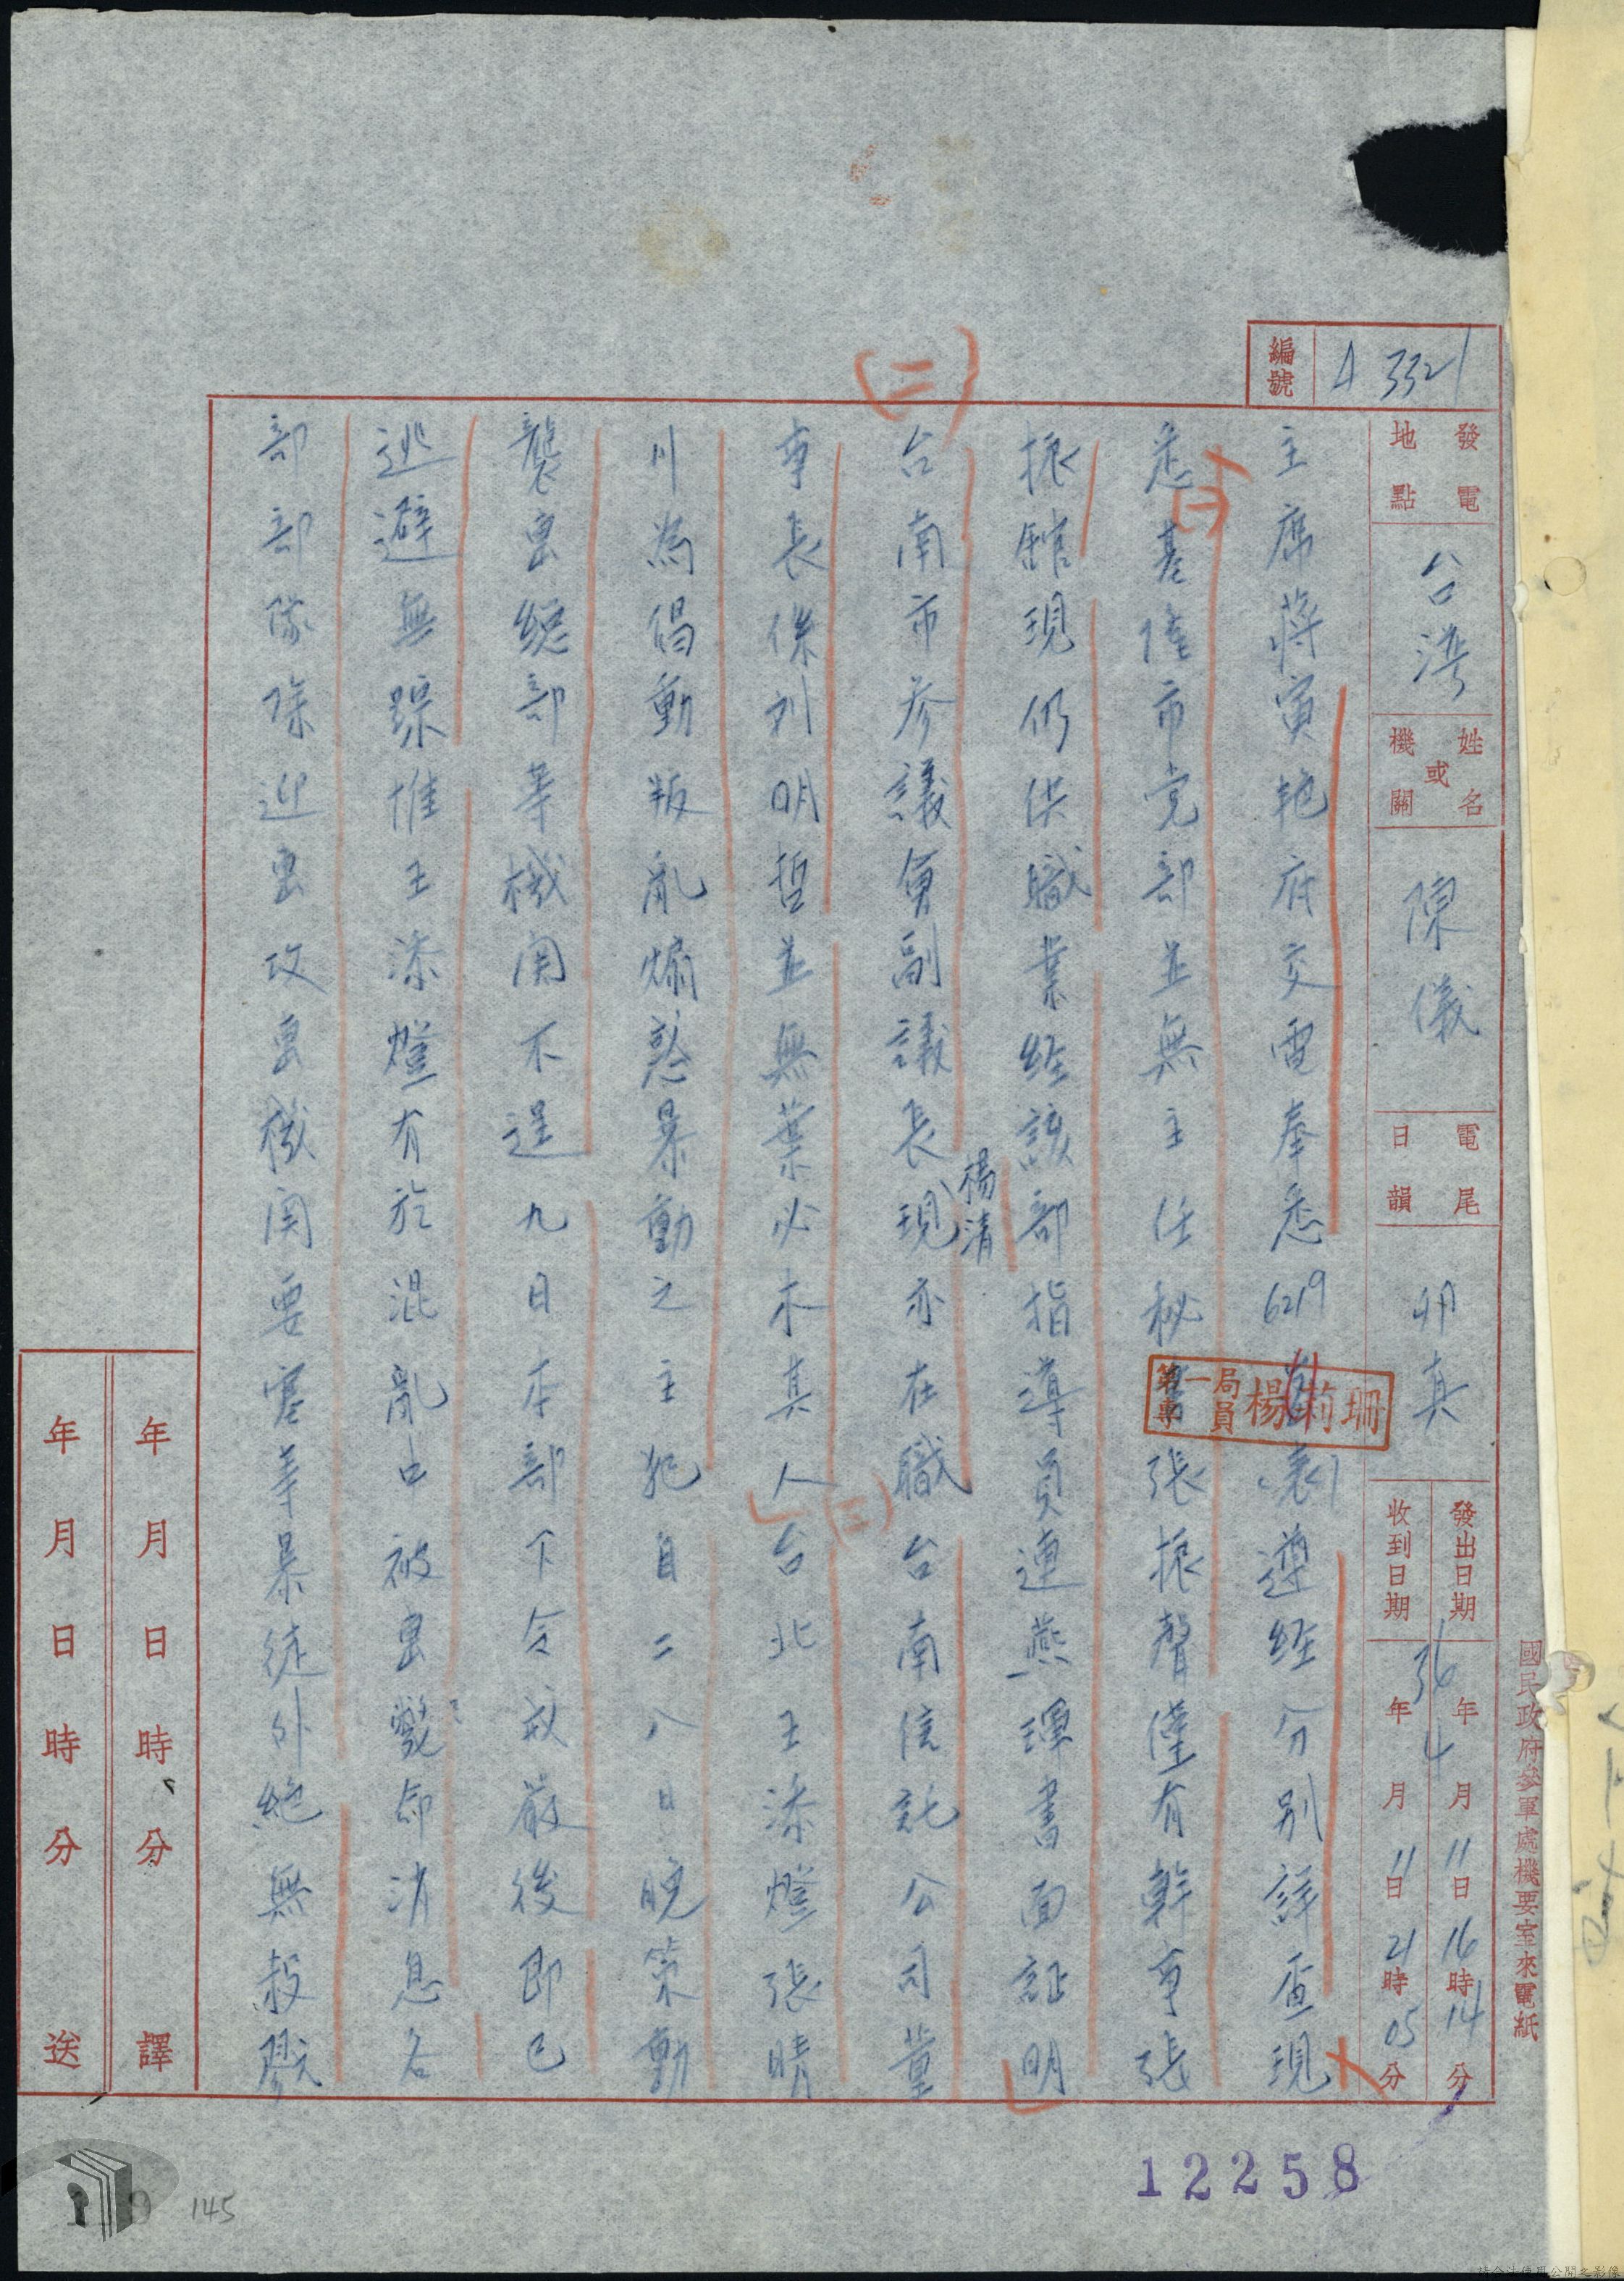 編號 A 3321
發電地點 台灣
姓名或機關 陳儀
電尾日韻 卯真
發出日期 36年4月11日16時14分
收到日期 年月11日21時05分
國民政府參軍處機要室來電紙
主席蔣寅艳府交電奉悉6219遵經分別詳查現
悉(一)基隆市党部並無主任秘書張振聲僅有幹事張
振聲現仍供職業経該部指導員連燕琿書面証明
(二)台南市參議會副議長楊清現亦在職台南信託公司董
事長係刘明哲並無葉必木其人(三)台北王添燈張晴
川為倡動叛亂煽惑暴動之主犯自二八日晚策動
襲擊總部等機関不逞九日本部下令戒嚴後即已
逃避無踪惟王添燈有於混亂中被擊斃命消息各
部部隊除迎擊攻擊機関要塞等暴徒外絶無殺戮
第一局專員 楊莉珊
年月日時分譯
年月日時分送
12258
145